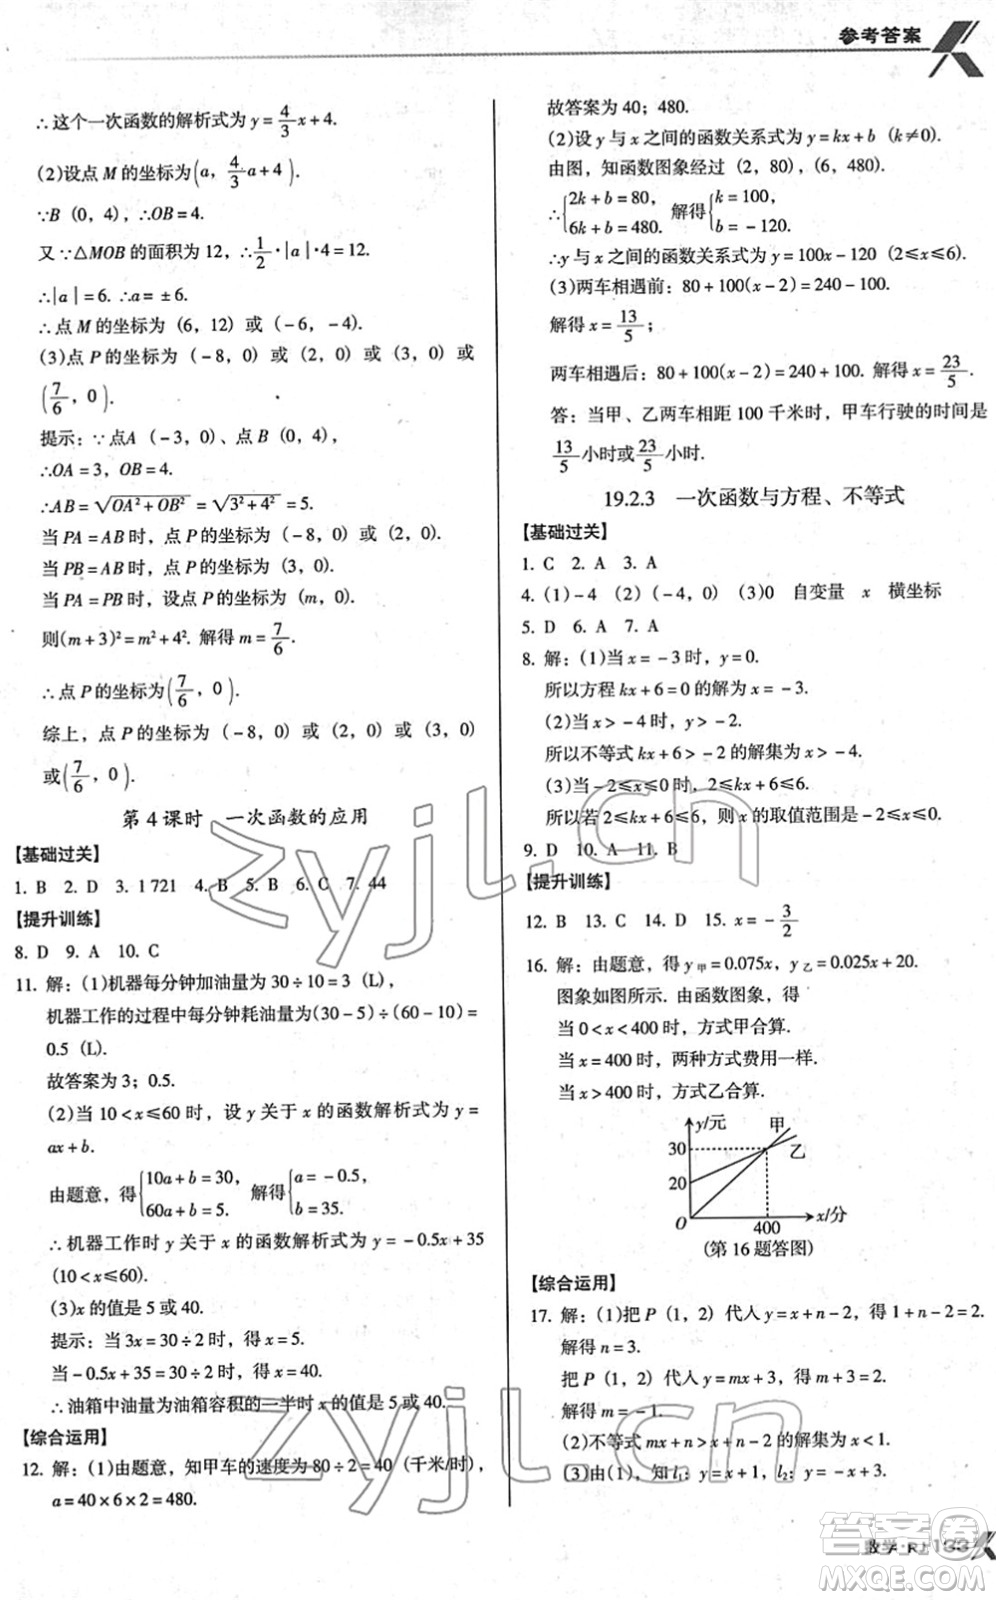 参考答案
∴这个一次函数的解析式为 y=4/3x+4.
(2)设点 M 的坐标为(a, 4/3a+4).
∵B (0, 4), ∴OB=4.
又∵△MOB 的面积为 12, ∴1/2·|a|·4=12.
∴|a|=6. ∴a=±6.
∴点 M 的坐标为 (6, 12) 或 (-6, -4).
(3)点 P 的坐标为 (-8, 0) 或 (2, 0) 或 (3, 0) 或
(7/6, 0).
提示: ∵点A (-3, 0)、点 B (0, 4),
∴OA=3, OB=4.
∴AB=√(OA²+OB²)=√(3²+4²)=5.
当 PA=AB 时, 点 P 的坐标为 (-8, 0) 或 (2, 0).
当 PB=AB 时, 点 P 的坐标为 (3, 0).
当 PA=PB 时, 设点 P 的坐标为 (m, 0).
则(m+3)²=m²+4². 解得 m=7/6.
∴点 P 的坐标为(7/6, 0).
综上, 点 P 的坐标为 (-8, 0) 或 (2, 0) 或 (3, 0)
或(7/6, 0).
第 4 课时 一次函数的应用
【基础过关】
1. B 2. D 3. 1 721 4. B 5. B 6. C 7. 44
【提升训练】
8. D 9. A 10. C
11. 解: (1)机器每分钟加油量为 30÷10=3 (L),
机器工作的过程中每分钟耗油量为(30-5)÷(60-10)=
0.5 (L).
故答案为 3; 0.5.
(2)当 10<x≤60 时, 设 y 关于 x 的函数解析式为 y=
ax+b.
由题意, 得{10a+b=30, 60a+b=5. 解得{a=-0.5, b=35.
∴机器工作时 y 关于 x 的函数解析式为 y=-0.5x+35
(10<x≤60).
(3)x 的值是 5 或 40.
提示: 当 3x=30÷2 时, 得 x=5.
当-0.5x+35=30÷2 时, 得 x=40.
∴油箱中油量为油箱容积的一半时 x的值是 5 或 40.
【综合运用】
12. 解: (1)由题意, 知甲车的速度为 80÷2=40 (千米/时),
a=40×6×2=480.
故答案为 40; 480.
(2)设 y 与 x 之间的函数关系式为 y=kx+b (k≠0).
由图, 知函数图象经过 (2, 80), (6, 480).
∴{2k+b=80, 6k+b=480. 解得{k=100, b=-120.
∴y 与 x 之间的函数关系式为 y=100x-120 (2≤x≤6).
(3)两车相遇前: 80+100(x-2)=240-100.
解得 x=13/5;
两车相遇后: 80+100(x-2)=240+100. 解得 x=23/5.
答: 当甲、乙两车相距 100 千米时, 甲车行驶的时间是
13/5小时或23/5小时.
19.2.3 一次函数与方程、不等式
【基础过关】
1. C 2. A 3. A
4. (1)-4 (2) (-4, 0) (3)0 自变量 x 横坐标
5. D 6. A 7. A
8. 解: (1)当 x=-3 时, y=0.
所以方程 kx+6=0 的解为 x=-3.
(2)当 x>-4 时, y>-2.
所以不等式 kx+6>-2 的解集为 x>-4.
(3)当-2≤x≤0 时, 2≤kx+6≤6.
所以若 2≤kx+6≤6, 则 x 的取值范围是-2≤x≤0.
9. D 10. A 11. B
【提升训练】
12. B 13. C 14. D 15. x=-3/2
16. 解: 由题意, 得 y甲=0.075x, y乙=0.025x+20.
图象如图所示. 由函数图象, 得
当 0<x<400 时, 方式甲合算.
当 x=400 时, 两种方式费用一样.
当 x>400 时, 方式乙合算.
y/元 甲
30 乙
20
O 400 x/分
(第 16 题答图)
【综合运用】
17. 解: (1)把 P (1, 2) 代人 y=x+n-2, 得 1+n-2=2.
解得 n=3.
把 P (1, 2) 代人 y=mx+3, 得 m+3=2.
解得 m=-1.
(2)不等式 mx+n>x+n-2 的解集为 x<1.
(3)由(1), 知 l₁: y=x+1, l₂: y=-x+3.
数学·RJ 133
zyjl.cn
zyjl.cn
答案圈
MXQE.COM